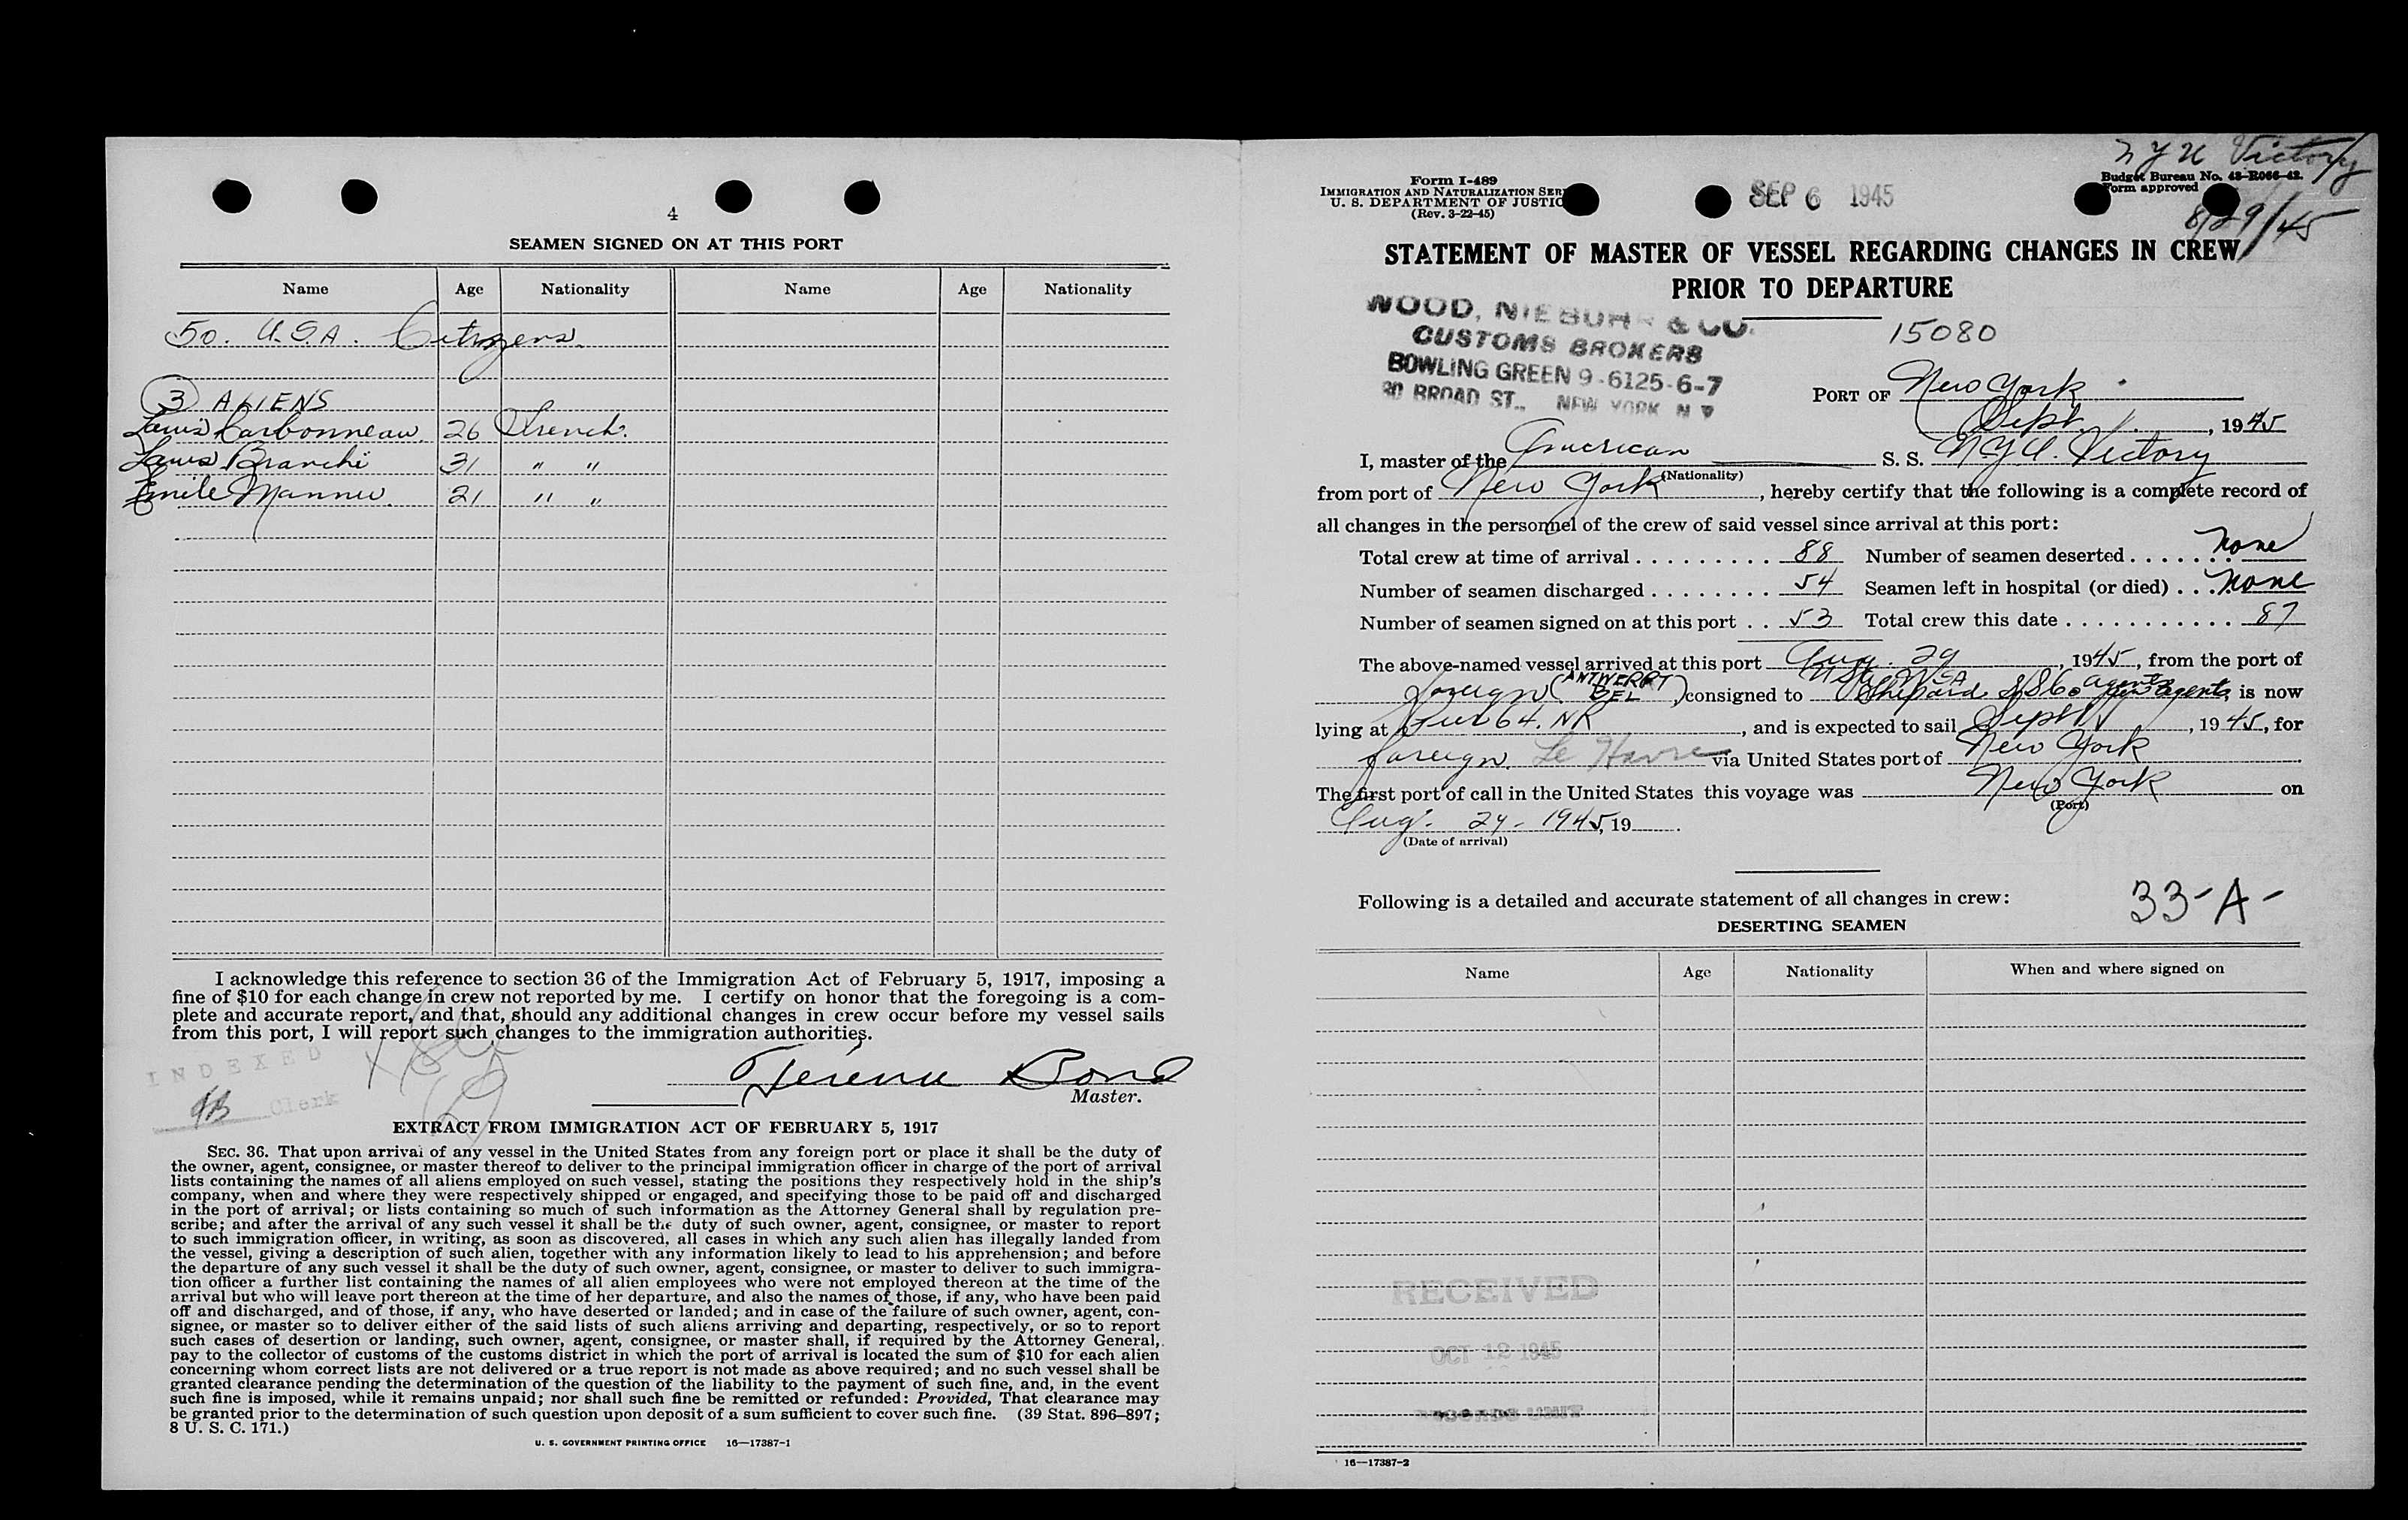 4
SEAMEN SIGNED ON AT THIS PORT
Name Age Nationality Name Age Nationality
50. U.S.A. Citizens.
3 ALIENS
Louis Carbonneau. 26 French.
Louis Branchi 31 " "
Emile 21 " "
I acknowledge this reference to section 36 of the Immigration Act of February 5, 1917, imposing a
fine of $10 for each change in crew not reported by me. I certify on honor that the foregoing is a com-
plete and accurate report, and that, should any additional changes in crew occur before my vessel sails
from this port, I will report such changes to the immigration authorities.
INDEXED
Clerk
Bond
Master.
EXTRACT FROM IMMIGRATION ACT OF FEBRUARY 5, 1917
SEC. 36. That upon arrival of any vessel in the United States from any foreign port or place it shall be the duty of
the owner, agent, consignee, or master thereof to deliver to the principal immigration officer in charge of the port of arrival
lists containing the names of all aliens employed on such vessel, stating the positions they respectively hold in the ship's
company, when and where they were respectively shipped or engaged, and specifying those to be paid off and discharged
in the port of arrival; or lists containing so much of such information as the Attorney General shall by regulation pre-
scribe; and after the arrival of any such vessel it shall be the duty of such owner, agent, consignee, or master to report
to such immigration officer, in writing, as soon as discovered, all cases in which any such alien has illegally landed from
the vessel, giving a description of such alien, together with any information likely to lead to his apprehension; and before
the departure of any such vessel it shall be the duty of such owner, agent, consignee, or master to deliver to such immigra-
tion officer a further list containing the names of all alien employees who were not employed thereon at the time of the
arrival but who will leave port thereon at the time of her departure, and also the names of those, if any, who have been paid
off and discharged, and of those, if any, who have deserted or landed; and in case of the failure of such owner, agent, con-
signee, or master so to deliver either of the said lists of such aliens arriving and departing, respectively, or so to report
such cases of desertion or landing, such owner, agent, consignee, or master shall, if required by the Attorney General,
pay to the collector of customs of the customs district in which the port of arrival is located the sum of $10 for each alien
concerning whom correct lists are not delivered or a true report is not made as above required; and no such vessel shall be
granted clearance pending the determination of the question of the liability to the payment of such fine, and, in the event
such fine is imposed, while it remains unpaid; nor shall such fine be remitted or refunded: Provided, That clearance may
be granted prior to the determination of such question upon deposit of a sum sufficient to cover such fine. (39 Stat. 896–897;
8 U. S. C. 171.)
U. S. GOVERNMENT PRINTING OFFICE 16—17387-1
N Y U Victory
8/29/45
Form I-489
IMMIGRATION AND NATURALIZATION SER
U. S. DEPARTMENT OF JUSTIC
(Rev. 3-22-45)
SEP 6 1945
Budget Bureau No. 43-R066-42.
Form approved
STATEMENT OF MASTER OF VESSEL REGARDING CHANGES IN CREW
PRIOR TO DEPARTURE
WOOD, NIEBUHR & CO.
CUSTOMS BROKERS
BOWLING GREEN 9-6125-6-7
80 BROAD ST., NEW YORK N Y
15080
PORT OF New York
Sept. 1. , 1945
I, master of the American S. S. N.Y.U. Victory
(Nationality)
from port of New York , hereby certify that the following is a complete record of
all changes in the personnel of the crew of said vessel since arrival at this port:
Total crew at time of arrival 88 Number of seamen deserted none
Number of seamen discharged 54 Seamen left in hospital (or died) none
Number of seamen signed on at this port 53 Total crew this date 87
The above-named vessel arrived at this port Aug. 29 , 1945, from the port of
foreign (ANTWERP BEL) , consigned to Shepard SS Co agents, is now
lying at Pier 64. NR , and is expected to sail Sept 1 , 1945, for
foreign. Le Havre via United States port of New York
The first port of call in the United States this voyage was New York on
(Port)
Aug. 29 - 1945, 19 .
(Date of arrival)
Following is a detailed and accurate statement of all changes in crew:
33-A-
DESERTING SEAMEN
Name Age Nationality When and where signed on
RECEIVED
OCT 12 1945
RECORDS UNIT
16—17387-2